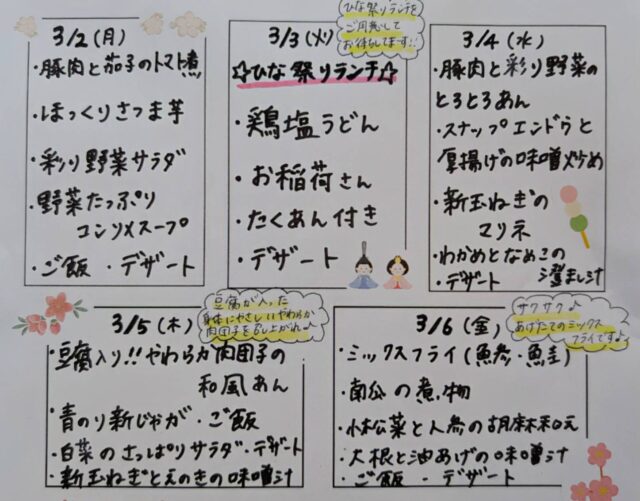 3/2(月)
・豚肉と茄子のトマト煮
・ほっくりさつま芋
・彩り野菜サラダ
・野菜たっぷり
コンソメスープ
・ご飯 ・デザート
ひな祭りランチを
ご用意して
お待ちしてます!!
3/3(火)
☆ひな祭りランチ☆
・鶏塩うどん
・お稲荷さん
・たくあん付き
・デザート
3/4(水)
・豚肉と彩り野菜の
とろとろあん
・スナップエンドウと
厚揚げの味噌炒め
・新玉ねぎの
マリネ
・わかめとなめこの
澄まし汁
・デザート
豆腐が入った
身体にやさしいやわらか
肉団子を召し上がれ♪
3/5(木)
・豆腐入り!!やわらか肉団子の
和風あん
・青のり新じゃが ・ご飯
・白菜のさっぱりサラダ・デザート
・新玉ねぎとえのきの味噌汁
サクサク♪
あげたてのミックス
フライですよ♪
3/6(金)
・ミックスフライ(魚参・魚圭)
・南瓜の煮物
・小松菜と人参の胡麻和え
・大根と油あげの味噌汁
・ご飯 ・デザート